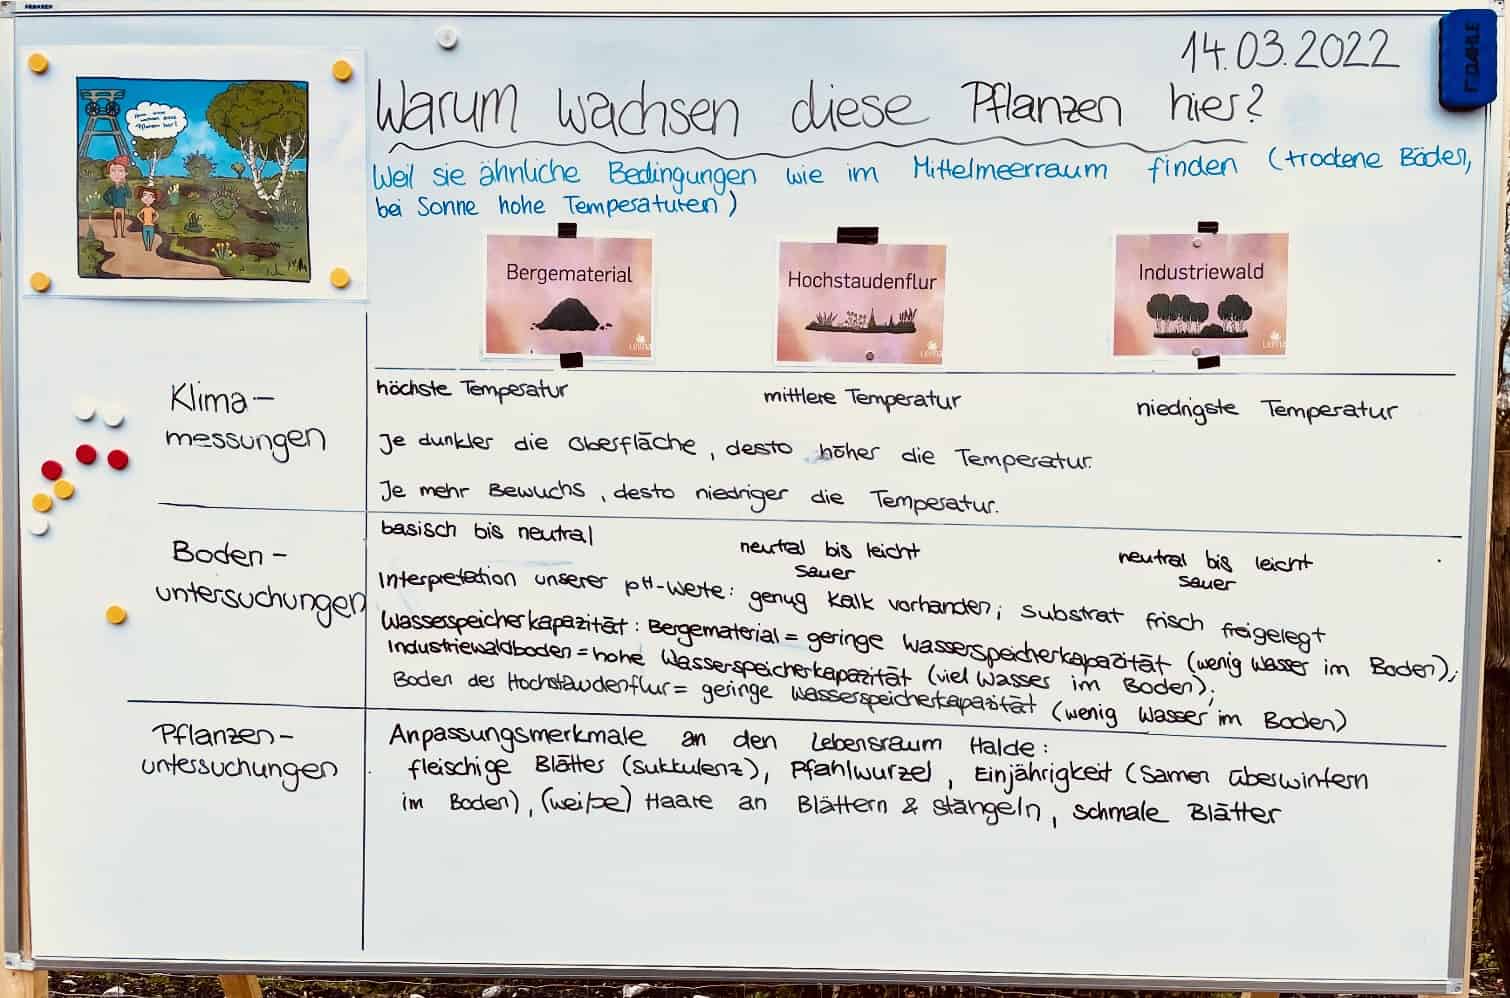 14.03.2022
DAHLE
Warum wachsen diese Pflanzen hier?
Weil sie ähnliche Bedingungen wie im Mittelmeerraum finden (trockene Böden,
bei Sonne hohe Temperaturen)
Bergematerial
Hochstaudenflur
Industriewald
Klima-
messungen
höchste Temperatur
mittlere Temperatur
niedrigste Temperatur
Je dunkler die Oberfläche, desto höher die Temperatur.
Je mehr Bewuchs, desto niedriger die Temperatur.
Boden-
untersuchungen
basisch bis neutral
neutral bis leicht
sauer
neutral bis leicht
sauer
Interpretation unserer pH-Werte: genug Kalk vorhanden; Substrat frisch freigelegt
Wasserspeicherkapazität: Bergematerial = geringe Wasserspeicherkapazität (wenig Wasser im Boden);
Industriewaldboden = hohe Wasserspeicherkapazität (viel Wasser im Boden);
Boden der Hochstaudenflur = geringe Wasserspeicherkapazität (wenig Wasser im Boden)
Pflanzen-
untersuchungen
Anpassungsmerkmale an den Lebensraum Halde:
fleischige Blätter (Sukkulenz), Pfahlwurzel, Einjährigkeit (Samen überwintern
im Boden), (weiße) Haare an Blättern & Stängeln, schmale Blätter